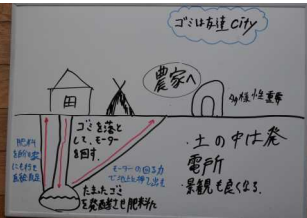 ゴミは友達city
農家へ
多様性重番
ゴミを落と
して、モーター
を回す。
肥料
モーターの回る力
で地上に押し出す
たまったゴミ
を発酵させ肥料に
・土の中は発
電所
・景観も良くなる。